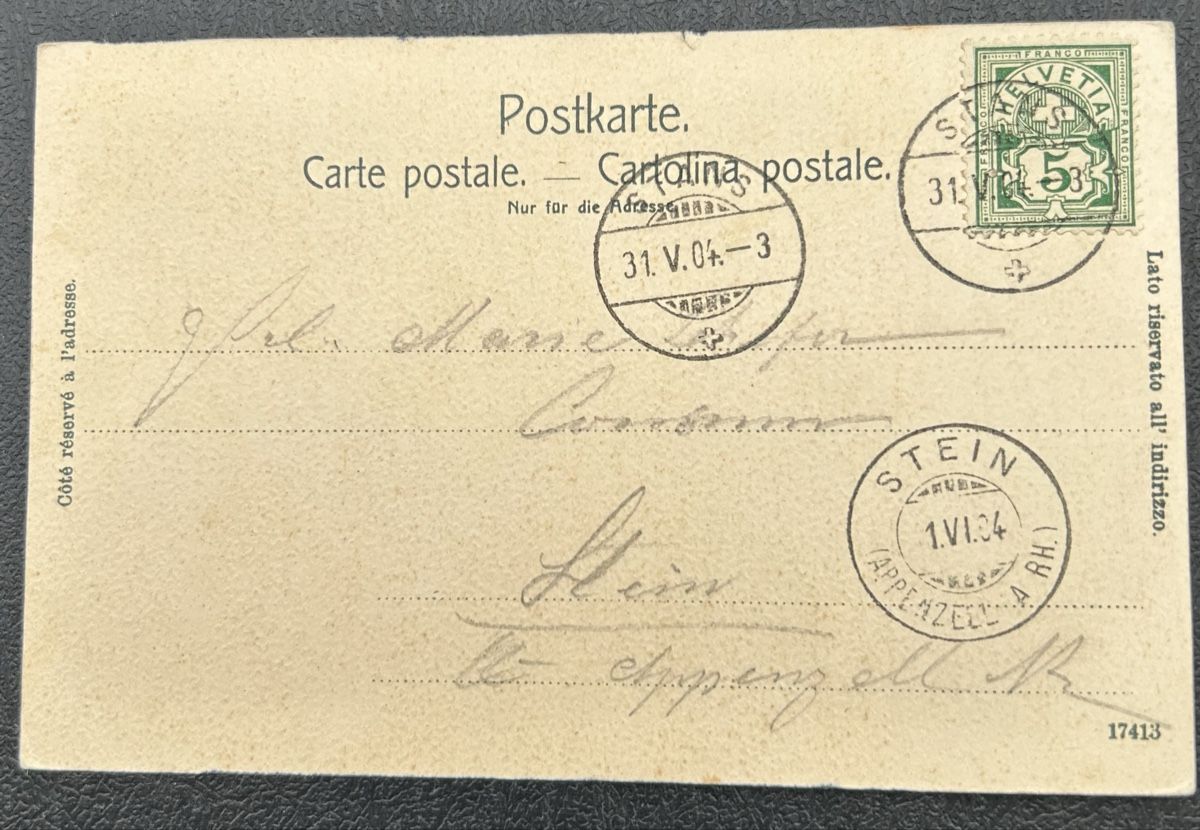 Postkarte.
Carte postale. — Cartolina postale.
Nur für die Adresse.
FRANCO
FRANCO
FRANCO
HELVETIA
5
STANS
31.V.04.–3
STANS
31.V.04.–3
Côté réservé à l'adresse.
Lato riservato all' indirizzo.
Marie
Stein
Appenzell
STEIN
1.VI.04
(APPENZELL A. RH.)
17413